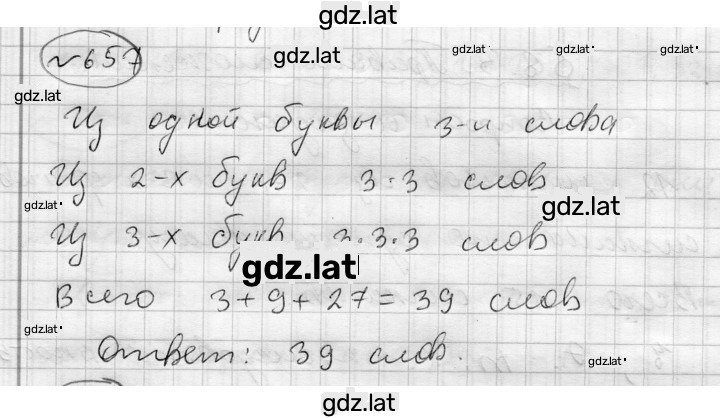 gdz.lat
№657
gdz.lat
gdz.lat
gdz.lat
gdz.lat
gdz.lat
Из одной буквы 3-и слова
Из 2-х букв 3·3 слов
gdz.lat
gdz.lat
Из 3-х букв 3·3·3 слов
gdz.lat
Всего 3+9+27=39 слов
gdz.lat
Ответ: 39 слов.
gdz.lat
gdz.lat